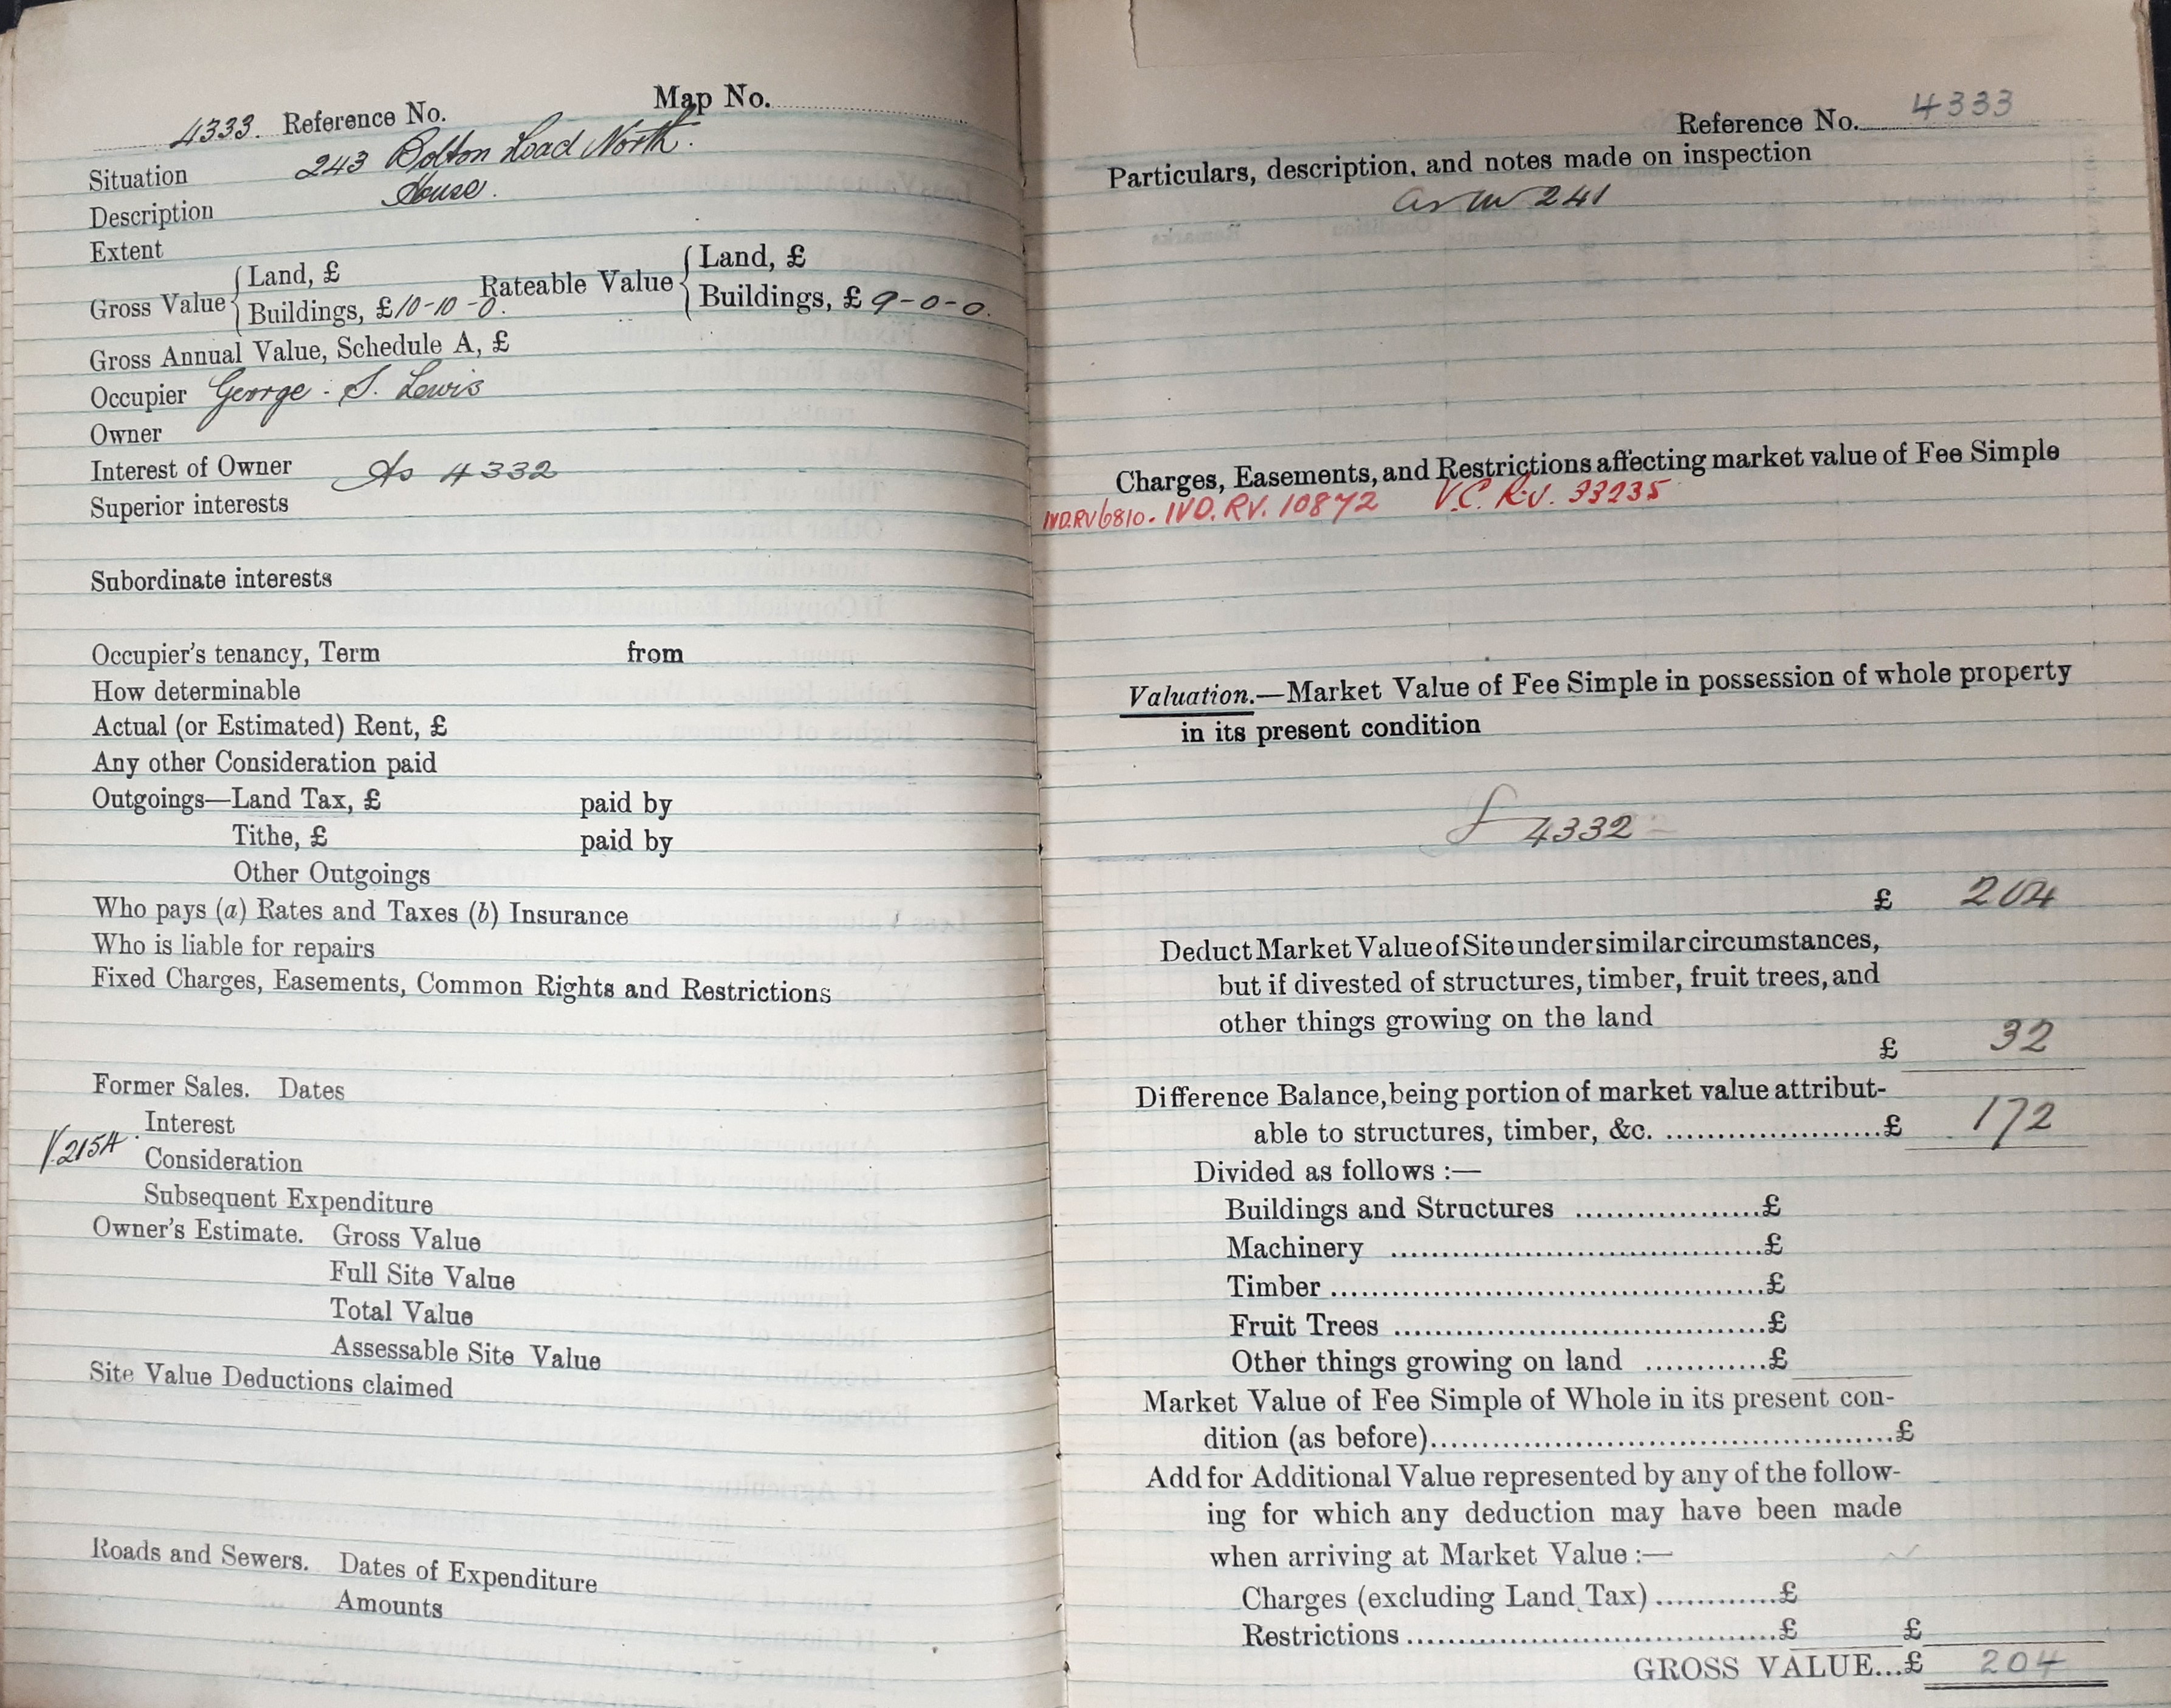 Map No.
4333. Reference No.
Situation 243 Bolton Road North.
Description House.
Extent
Gross Value { Land, £ Rateable Value { Land, £
Buildings, £ 10-10-0. Buildings, £ 9-0-0.
Gross Annual Value, Schedule A, £
Occupier George. S. Lewis
Owner
Interest of Owner As 4332
Superior interests
Subordinate interests
Occupier's tenancy, Term from
How determinable
Actual (or Estimated) Rent, £
Any other Consideration paid
Outgoings—Land Tax, £ paid by
Tithe, £ paid by
Other Outgoings
Who pays (a) Rates and Taxes (b) Insurance
Who is liable for repairs
Fixed Charges, Easements, Common Rights and Restrictions
Former Sales. Dates
Interest
Consideration
Subsequent Expenditure
Owner's Estimate. Gross Value
Full Site Value
Total Value
Assessable Site Value
Site Value Deductions claimed
Roads and Sewers. Dates of Expenditure
Amounts
Reference No. 4333
Particulars, description, and notes made on inspection
as in 241
Charges, Easements, and Restrictions affecting market value of Fee Simple
IVD.RV 6810. IVD. RV. 10872 V.C. R.V. 33235
Valuation.—Market Value of Fee Simple in possession of whole property
in its present condition
4332
£ 204
Deduct Market Value of Site under similar circumstances,
but if divested of structures, timber, fruit trees, and
other things growing on the land
£ 32
Difference Balance, being portion of market value attribut-
able to structures, timber, &c. ....................£ 172
Divided as follows :—
Buildings and Structures ..................£
Machinery ....................................£
Timber ..........................................£
Fruit Trees ....................................£
Other things growing on land ............£
Market Value of Fee Simple of Whole in its present con-
dition (as before)..............................................£
Add for Additional Value represented by any of the follow-
ing for which any deduction may have been made
when arriving at Market Value :—
Charges (excluding Land Tax) ............£
Restrictions ....................................£ £
GROSS VALUE...£ 204